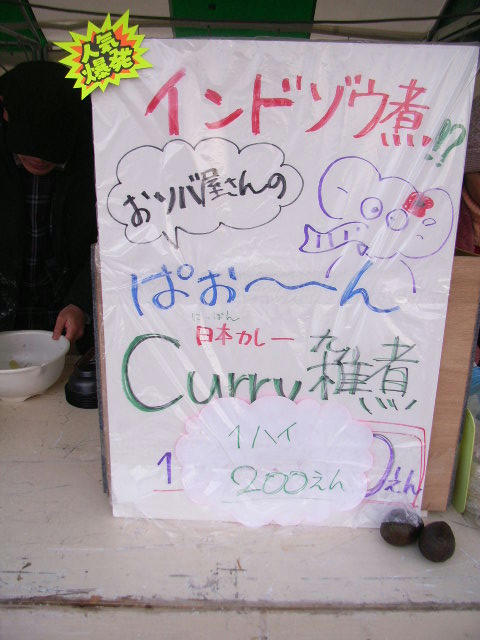 人気
爆発
インドゾウ煮!?
おソバ屋さんの
ぱお〜〜ん
にっぽん
日本カレー
Curry 雑煮
1ハイ
200えん
1
えん